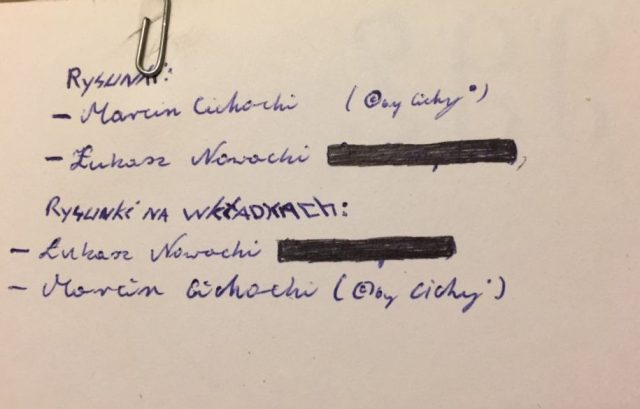 RYSUNKI:
- Marcin Cichocki (©by Cichy)
- Łukasz Nowocki
RYSUNKI NA WKŁADKACH:
- Łukasz Nowocki
- Marcin Cichocki (©by Cichy)